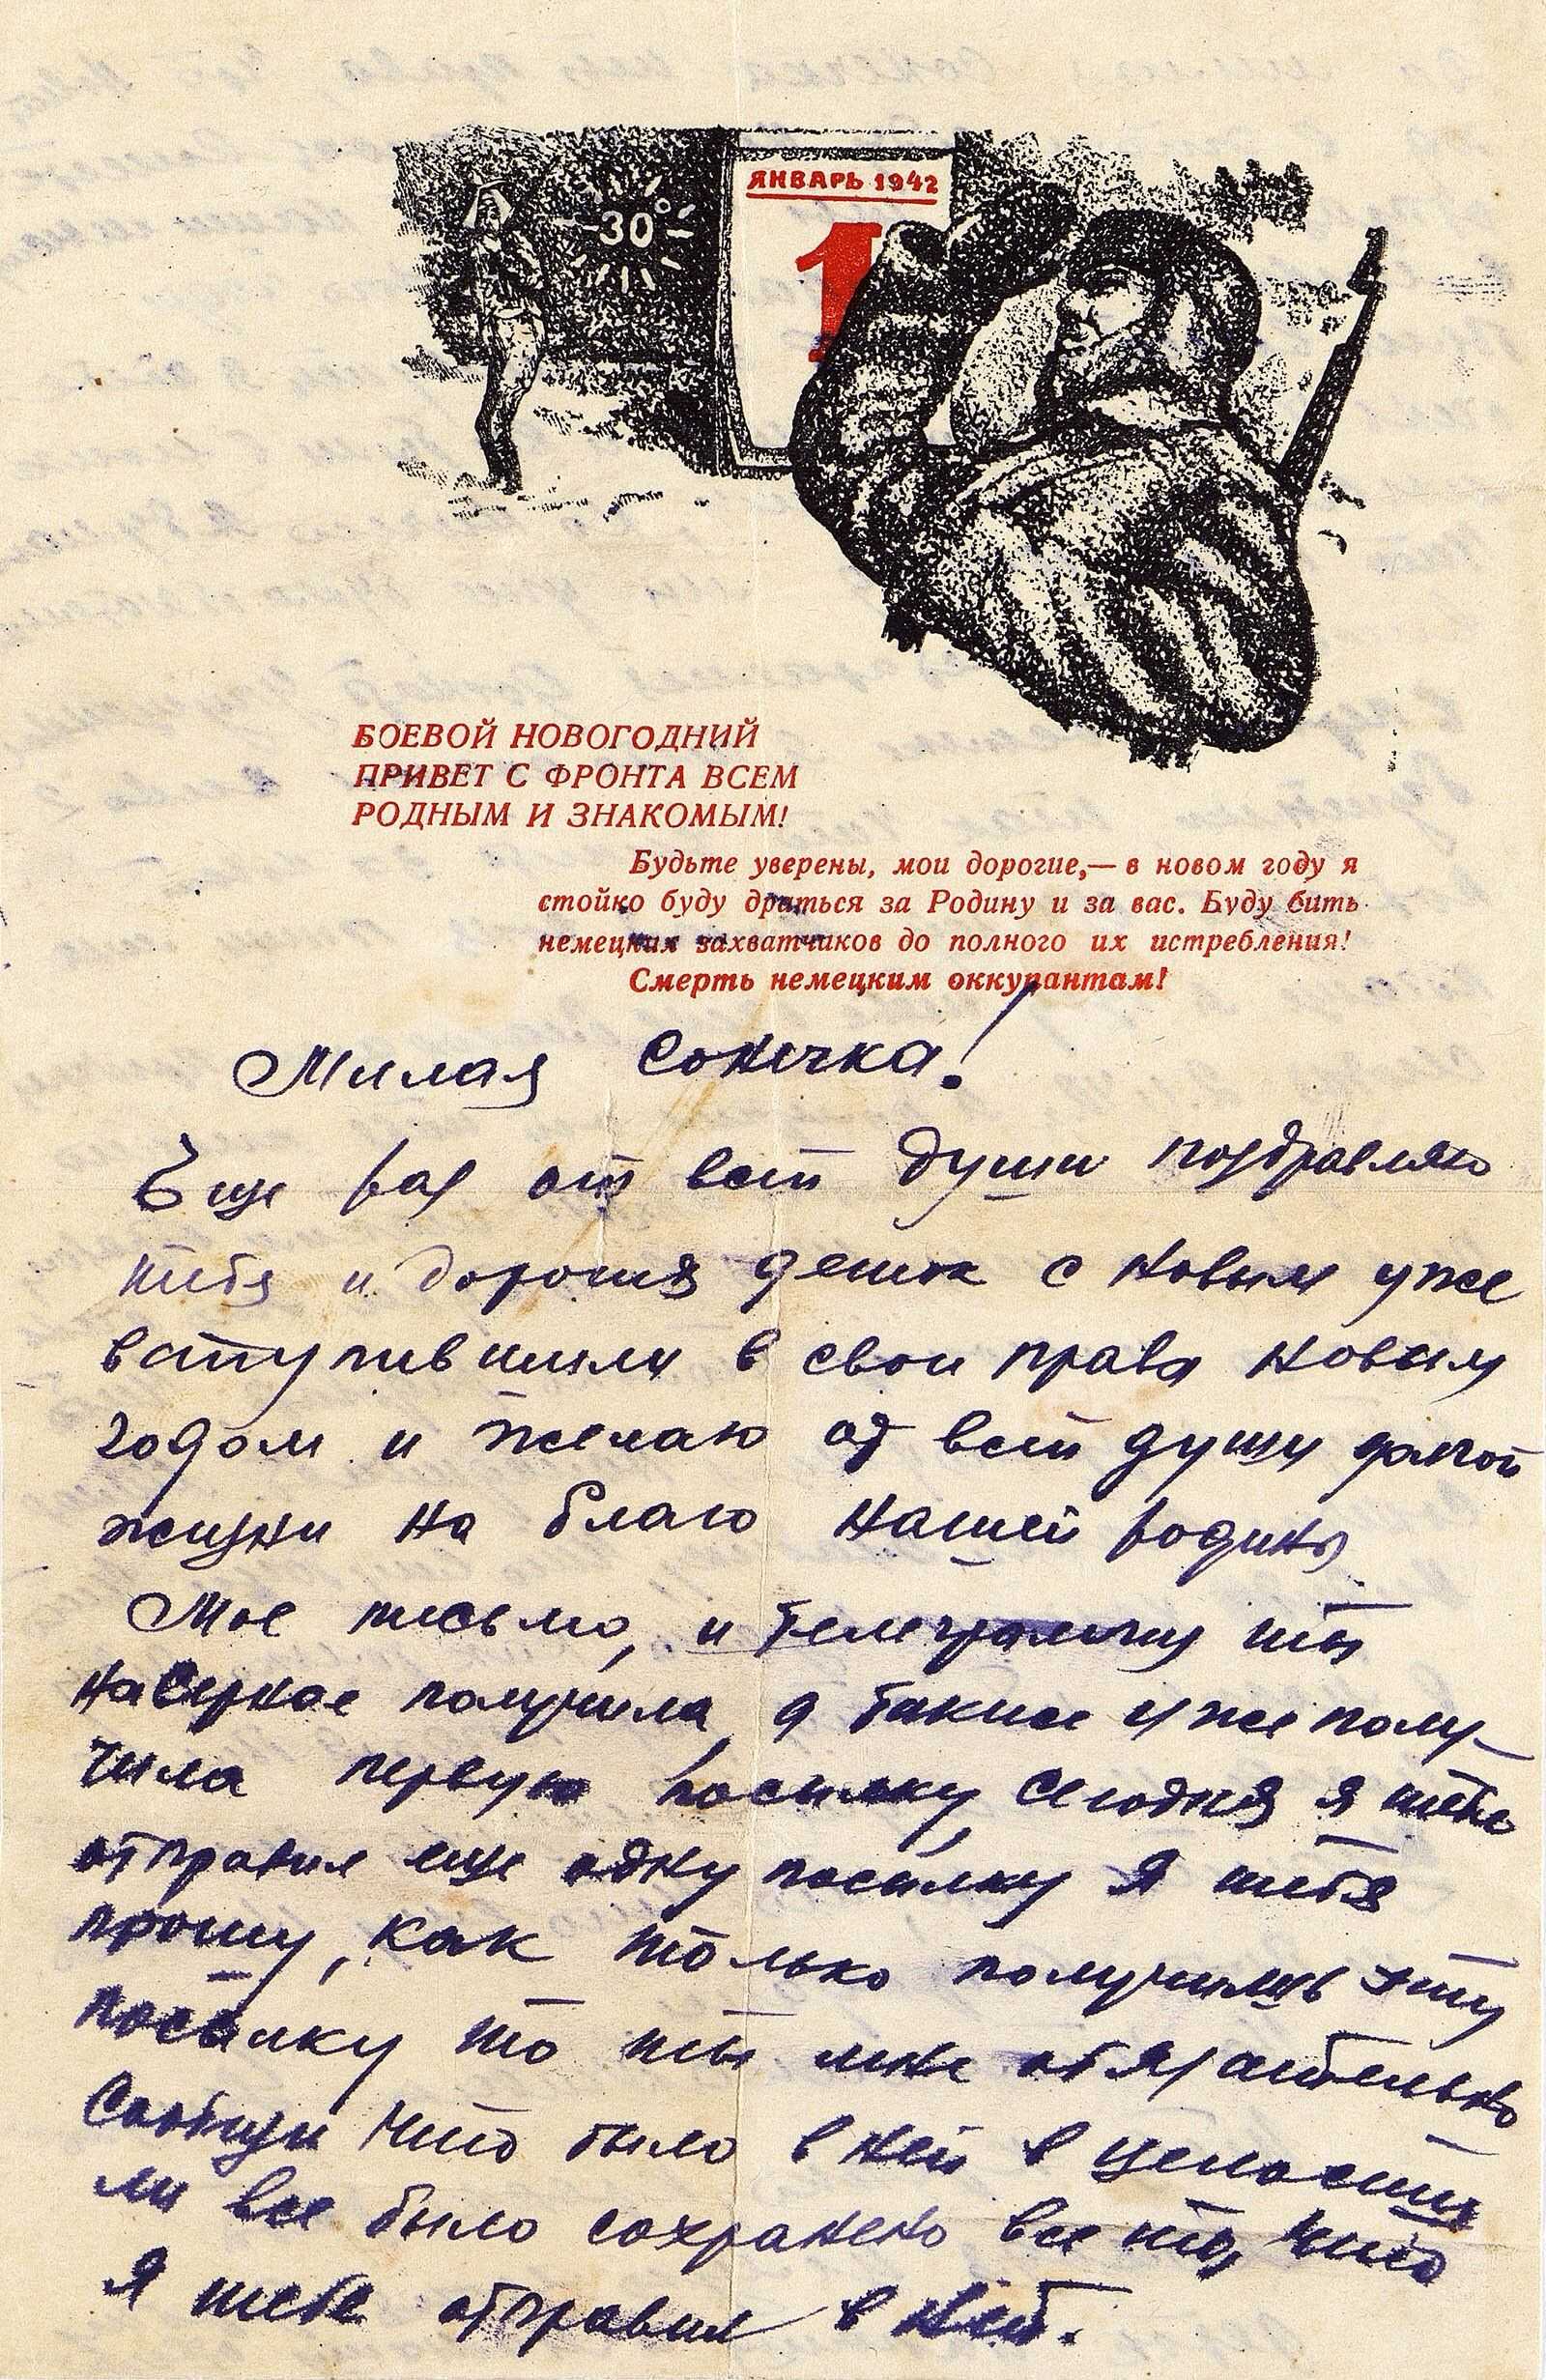 -30°
ЯНВАРЬ 1942
1
БОЕВОЙ НОВОГОДНИЙ
ПРИВЕТ С ФРОНТА ВСЕМ
РОДНЫМ И ЗНАКОМЫМ!
Будьте уверены, мои дорогие,— в новом году я
стойко буду драться за Родину и за вас. Буду бить
немецких захватчиков до полного их истребления!
Смерть немецким оккупантам!
Милая Сонечка!
Еще раз от всей души поздравляю
тебя и дорогих деток с новым уже
вступившим в свои права новым
годом и желаю от всей души долгой
жизни на благо нашей родины
Мое письмо, и телеграмму ты
наверное получила, а также уже полу-
чила первую посылку, сегодня я тебе
отправил еще одну посылку я тебя
прошу, как только получишь эту
посылку то ты мне обязательно
сообщи что было в ней в целости
ли все было сохранено все то, что
я тебе отправил в ней.